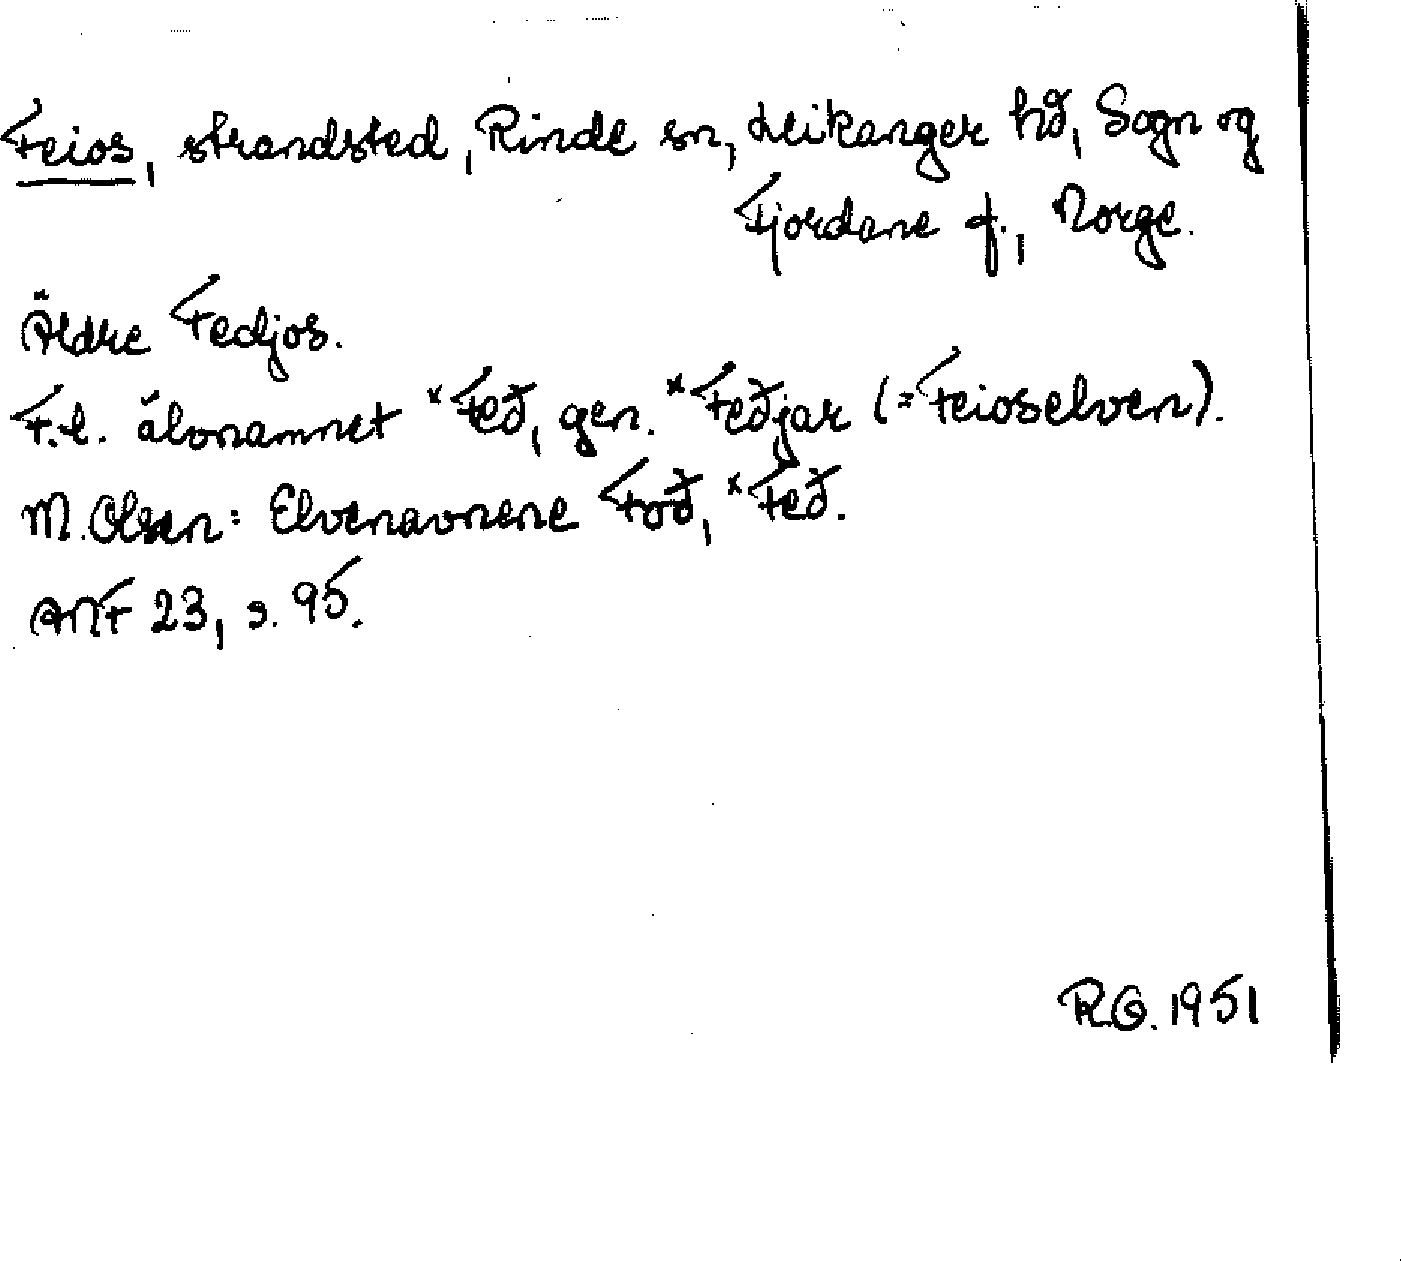 Feios, strandsted, Rinde sn, Leikanger hd, Sogn og
Fjordane f., Norge.
Äldre Fedjos.
F.l. älvnamnet *Feð, gen. *Feðjar (= Feioselven).
M. Olsen: Elvenavnene Foð, *Feð.
ANF 23, s. 95.
R.G. 1951